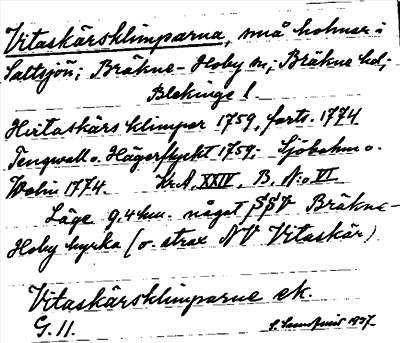 Vitaskärsklimparna, små holmar i
Saltsjön; Bräkne-Hoby sn; Bräkne hd;
Blekinge l.
Hvitaskärs klimpar 1759, forts. 1774
Tengwall o. Hägerflyckt 1759; Sjöbohm o.
Wolin 1774. Kr.A. XXIV, B. N:o VI
Läge 9,4 km. något SSV Bräkne-
Hoby kyrka (o. strax NV Vitaskär)
Vitaskärsklimparne ek.
G. 11. 1937